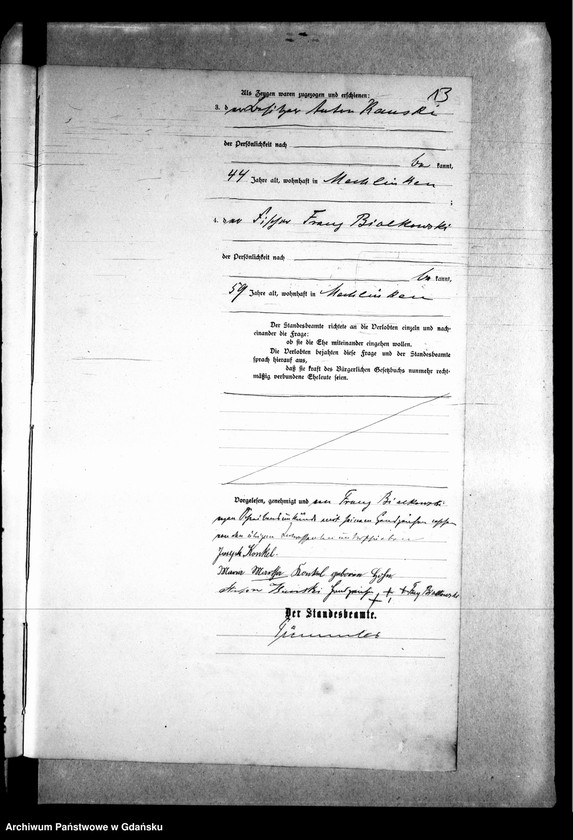 13
Als Zeugen waren zugezogen und erschienen:
3. der Besitzer Anton Kanski
der Persönlichkeit nach
be kannt,
44 Jahre alt, wohnhaft in Mechlinken
;
4. der Fischer Franz Bialkowski
der Persönlichkeit nach
be kannt,
59 Jahre alt, wohnhaft in Mechlinken
Der Standesbeamte richtete an die Verlobten einzeln und nach-
einander die Frage:
ob sie die Ehe miteinander eingehen wollen.
Die Verlobten bejahten diese Frage und der Standesbeamte
sprach hierauf aus,
daß sie kraft des Bürgerlichen Gesetzbuchs nunmehr recht-
mäßig verbundene Eheleute seien.
Vorgelesen, genehmigt und von Franz Bialkowski
wegen Schreibensunkunde mit seinem Handzeichen versehen
von den übrigen unterschrieben
Joseph Konkel.
Maria Martha Konkel geborene
Kanski Handzeichen +++ Franz Bialkowski
Der Standesbeamte.
Archiwum Państwowe w Gdańsku